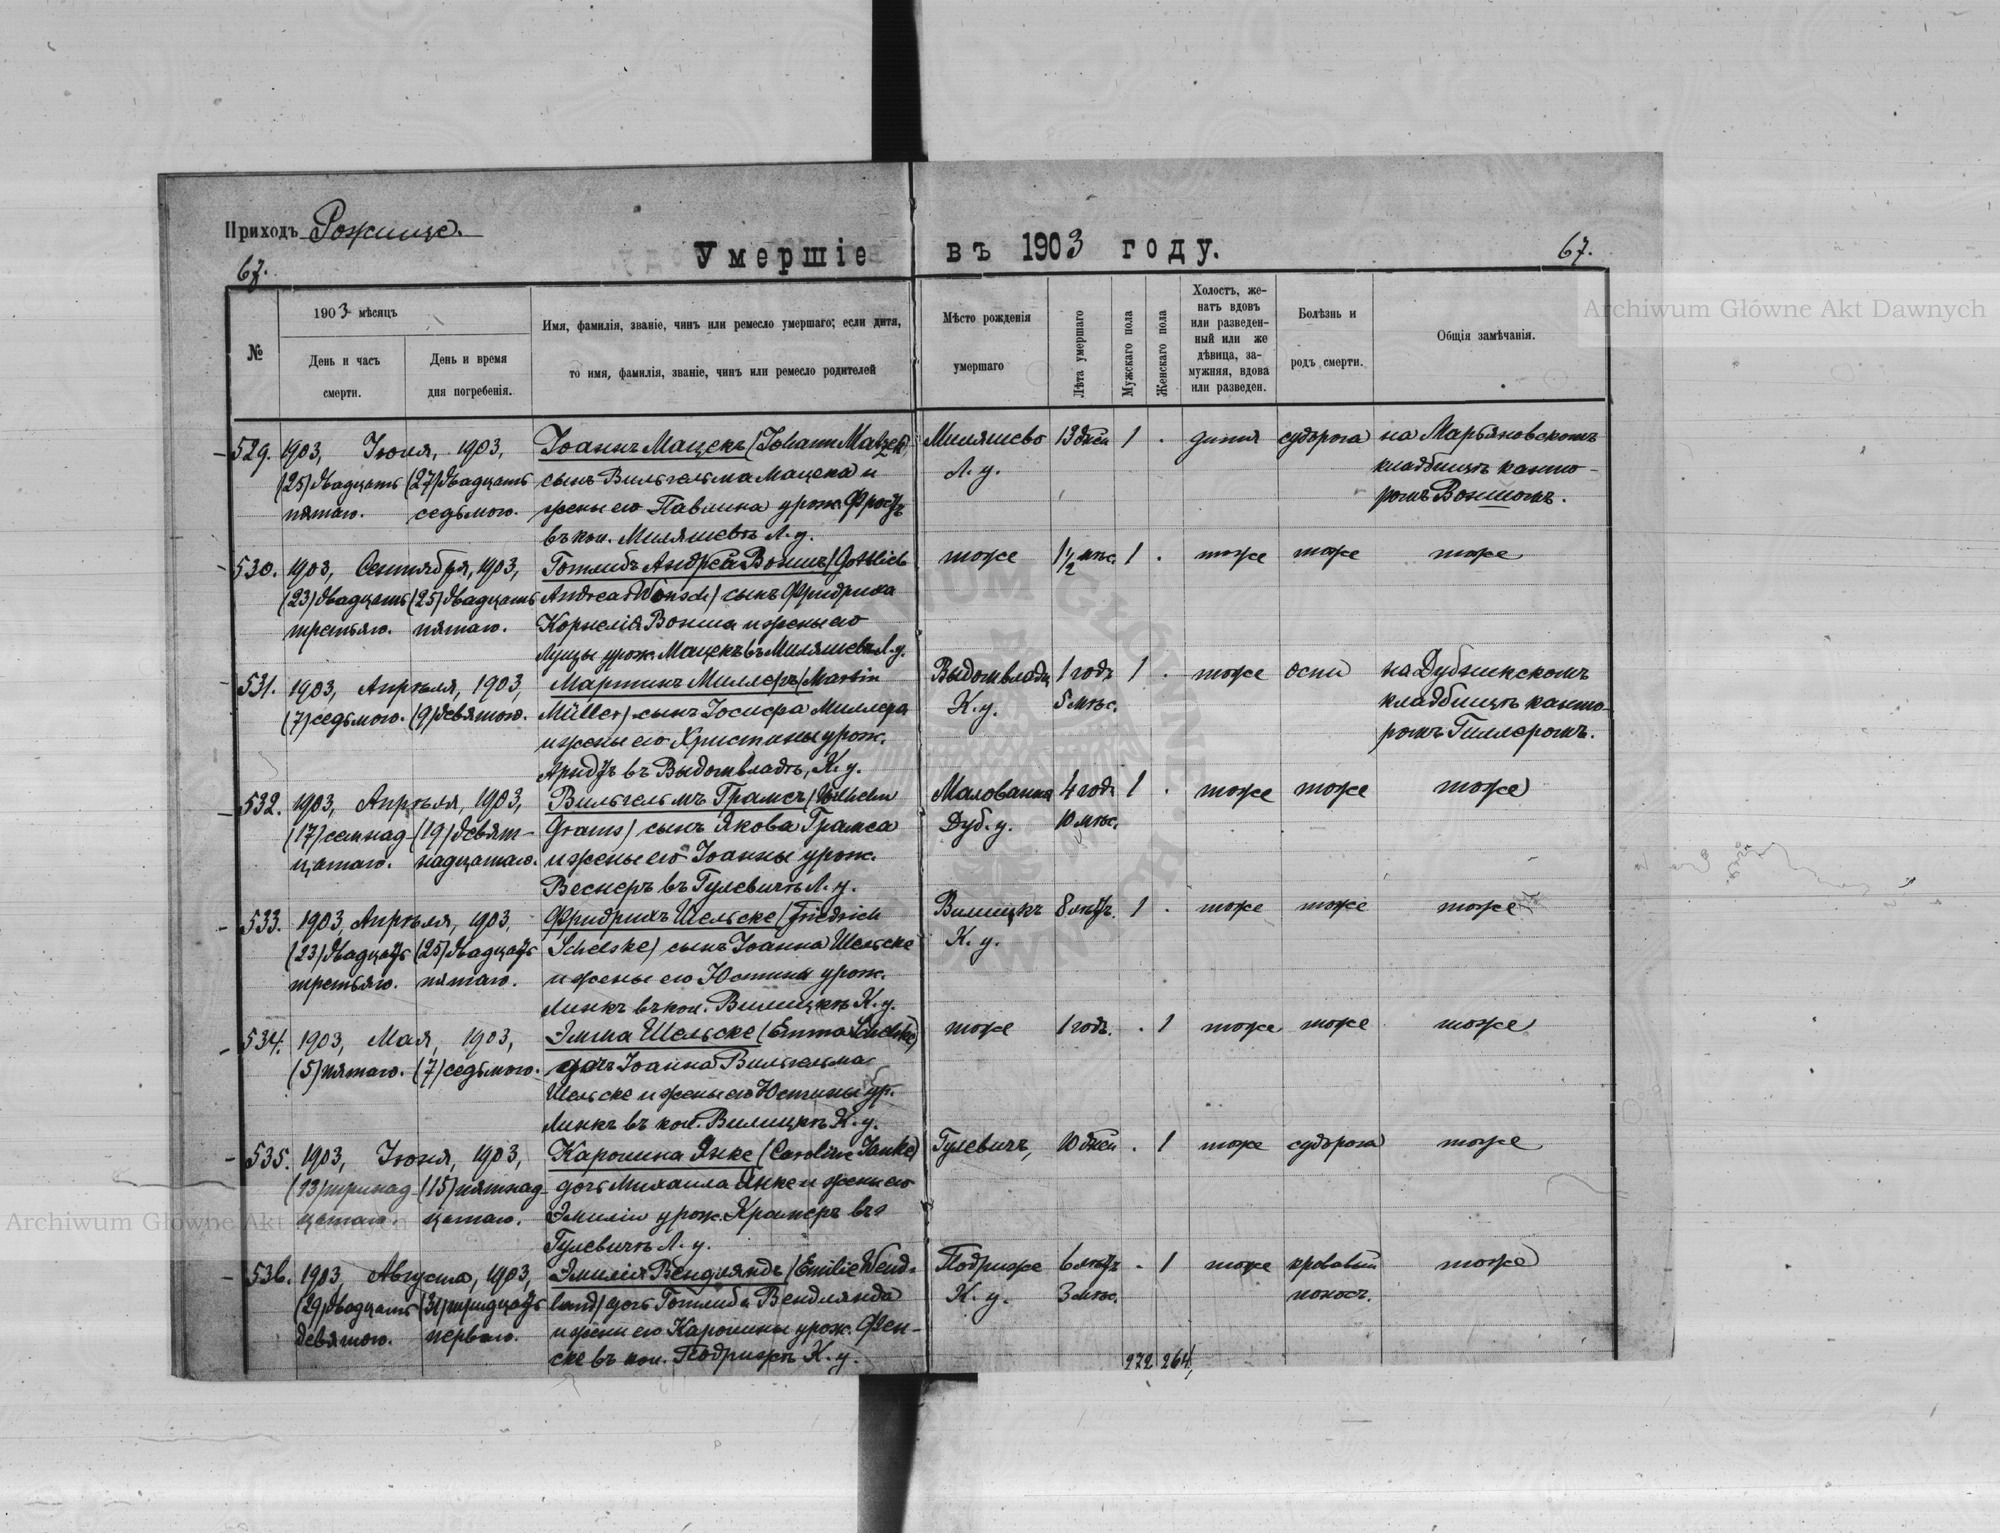 Приходъ Рожище.
Умершіе въ 1903 году.
67.
67.
№
1903 мѣсяцъ
День и часъ
смерти.
День и время
дня погребенія.
Имя, фамилія, званіе, чинъ или ремесло умершаго; если дитя,
то имя, фамилія, званіе, чинъ или ремесло родителей
Мѣсто рожденія
умершаго
Лѣта умершаго
Мужскаго пола
Женскаго пола
Холостъ, же-
натъ вдовъ
или разведен-
ный или же
дѣвица, за-
мужняя, вдова
или разведен.
Болѣзнь и
родъ смерти.
Общія замѣчанія.
Archiwum Główne Akt Dawnych
529. 1903, Іюня, 1903, Іоаннъ Мацекъ (Johann Matzek), Миляшево 13 дней 1 . дитя судорога на Марьяновскомъ
(25) двадцать (27) двадцать сынъ Вильгельма Мацека и Л. у. кладбищѣ канто-
пятаго. седьмого. жены его Павлина урож. Фросъ ромъ Воншомъ.
въ кол. Миляшевѣ Л. у.
530. 1903, Сентября, 1903, Готлибъ Андрей Воншъ (Gottlieb тоже 1 1/2 мѣс. 1 . тоже тоже тоже
(23) двадцать (25) двадцать Andreas Wonsch) сынъ Фридриха
третьяго. пятаго. Корнелія Вонша и жены его
Луизы урож. Мацекъ въ Миляшевѣ Л. у.
531. 1903, Апрѣля, 1903, Мартинъ Миллеръ (Martin 1 годъ 1 . тоже оспа на Дубникскомъ
(7) седьмого. (9) девятого. Müller) сынъ Іосифа Миллера К. у. 5 мѣс. кладбищѣ канто-
и жены его Христины урож. ромъ Гиллеромъ.
въ К. у.
532. 1903, Апрѣля, 1903, Вильгельмъ Грамсъ (Wilhelm Малованка 4 года 1 . тоже тоже тоже
(17) семнад- (19) девят- Grams) сынъ Якова Грамса Дуб. у. 10 мѣс.
цатаго. надцатаго. и жены его Іоанны урож.
Веснеръ въ Гулевичѣ Л. у.
533. 1903, Апрѣля, 1903, Фридрихъ Шельске (Friedrich Вилицкъ 8 лѣтъ. 1 . тоже тоже тоже
(23) двадцать (25) двадцать Schelske) сынъ Іоанна Шельске К. у.
третьяго. пятаго. и жены его Юстины урож.
Линкъ въ кол. Вилицкѣ К. у.
534. 1903, Мая, 1903, Эмма Шельске (Emma Schelske) тоже 1 годъ. . 1 тоже тоже тоже
(5) пятаго. (7) седьмого. дочь Іоанна Вильгельма
Шельске и жены его Юстины ур.
Линкъ въ кол. Вилицкѣ К. у.
535. 1903, Іюня, 1903, Каролина Янке (Caroline Janke) Гулевичъ, 10 дней . 1 тоже судорога тоже
(13) тринад- (15) пятнад- дочь Михаила Янке и жены его
цатаго. цатаго. Эмиліи урож. Крамеръ въ
Гулевичѣ Л. у.
Archiwum Główne Akt Dawnych
536. 1903, Августа, 1903, Эмилія Вендляндъ (Emilie Wend- Подриже 6 лѣтъ . 1 тоже кровавый тоже
(29) двадцать (31) тридцать land) дочь Готлиба Вендлянда К. у. 3 мѣс. поносъ.
девятого. перваго. и жены его Каролины урож. Фен-
ске въ кол. Подрижѣ К. у.
272 264,